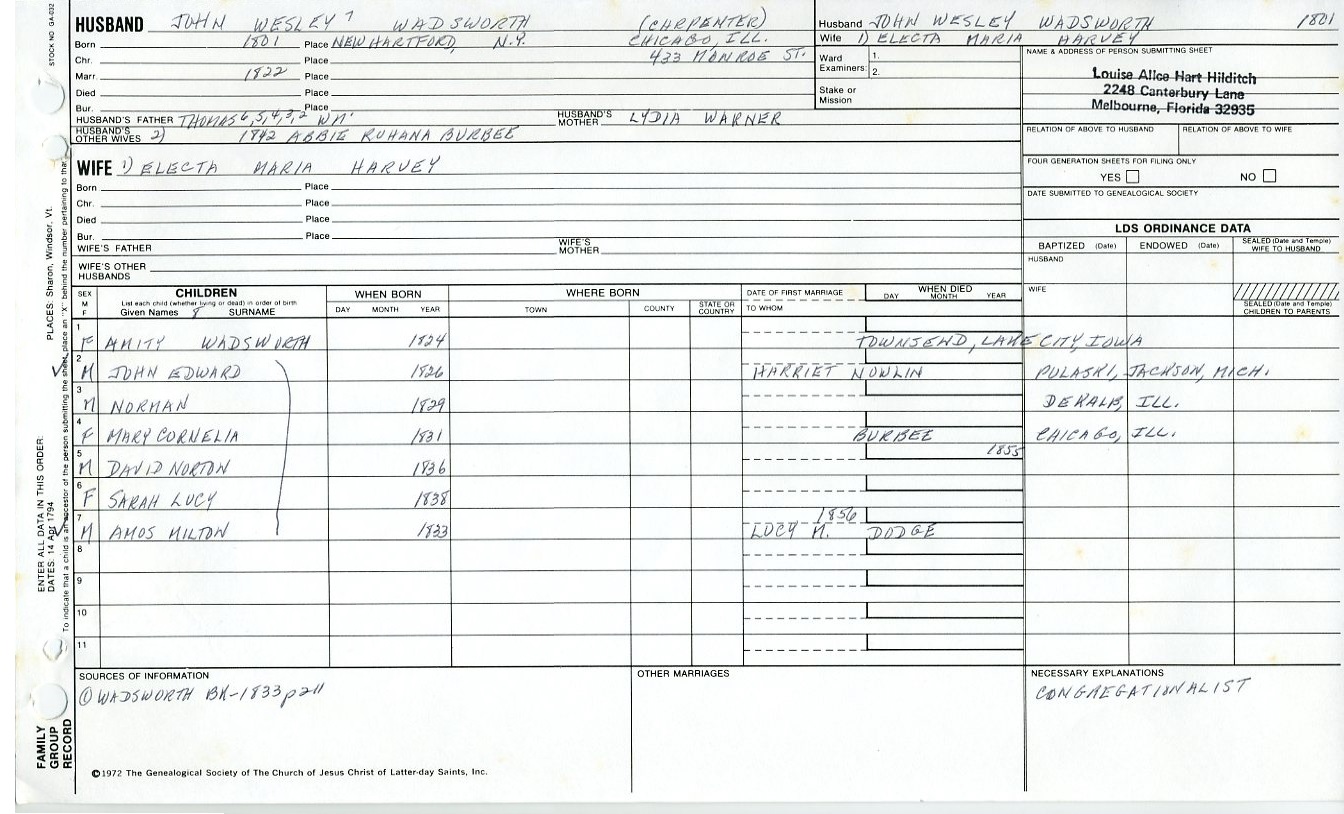 STOCK NO. GA-032
HUSBAND JOHN WESLEY 7 WADSWORTH (CARPENTER)
Born 1801 Place NEW HARTFORD, N.Y. CHICAGO, ILL.
Chr. Place 433 MONROE ST.
Marr. 1822 Place
Died Place
Bur. Place
HUSBAND'S FATHER THOMAS 6, 5, 4, 3, 2 WM' HUSBAND'S MOTHER LYDIA WARNER
HUSBAND'S OTHER WIVES 2) 1842 ABBIE RUHANA BURBEE
Husband JOHN WESLEY WADSWORTH 1801
Wife 1) ELECTA MARIA HARVEY
Ward Examiners: 1.
2.
Stake or Mission
NAME & ADDRESS OF PERSON SUBMITTING SHEET
Louise Alice Hart Hilditch
2248 Canterbury Lane
Melbourne, Florida 32935
RELATION OF ABOVE TO HUSBAND RELATION OF ABOVE TO WIFE
FOUR GENERATION SHEETS FOR FILING ONLY
YES NO
DATE SUBMITTED TO GENEALOGICAL SOCIETY
WIFE 1) ELECTA MARIA HARVEY
Born Place
Chr. Place
Died Place
Bur. Place
WIFE'S FATHER WIFE'S MOTHER
WIFE'S OTHER HUSBANDS
LDS ORDINANCE DATA
BAPTIZED (Date) ENDOWED (Date) SEALED (Date and Temple) WIFE TO HUSBAND
HUSBAND
WIFE
SEALED (Date and Temple) CHILDREN TO PARENTS
SEX M F CHILDREN WHEN BORN WHERE BORN DATE OF FIRST MARRIAGE WHEN DIED
List each child (whether living or dead) in order of birth
Given Names 8 SURNAME DAY MONTH YEAR TOWN COUNTY STATE OR COUNTRY TO WHOM DAY MONTH YEAR
1 F AMITY WADSWORTH 1824 TOWNSEND, LAKE CITY, IOWA
2 M JOHN EDWARD 1826 HARRIET NOWLIN PULASKI, JACKSON, MICH.
3 M NORMAN 1829 DEKALB, ILL.
4 F MARY CORNELIA 1831 BURBEE CHICAGO, ILL.
5 M DAVID NORTON 1836 1855
6 F SARAH LUCY 1838
7 M AMOS MILTON 1833 1856 LUCY M. DODGE
8
9
10
11
SOURCES OF INFORMATION
① WADSWORTH BK-1833 p 211
OTHER MARRIAGES
NECESSARY EXPLANATIONS
CONGREGATIONALIST
©1972 The Genealogical Society of The Church of Jesus Christ of Latter-day Saints, Inc.
FAMILY GROUP RECORD
ENTER ALL DATA IN THIS ORDER:
DATES: 14 Apr 1794
PLACES: Sharon, Windsor, Vt.
To indicate that a child is an ancestor of the person submitting the sheet, place an "X" behind the number pertaining to that